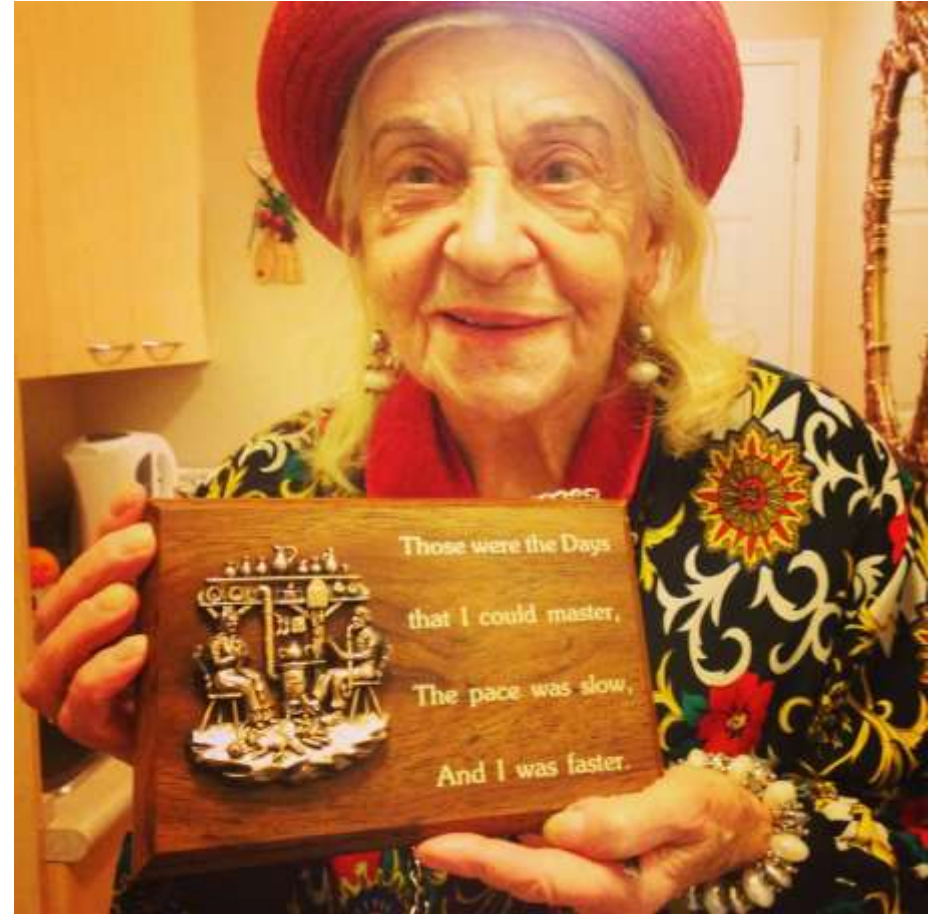 Those were the Days
that I could master,
The pace was slow,
And I was faster.